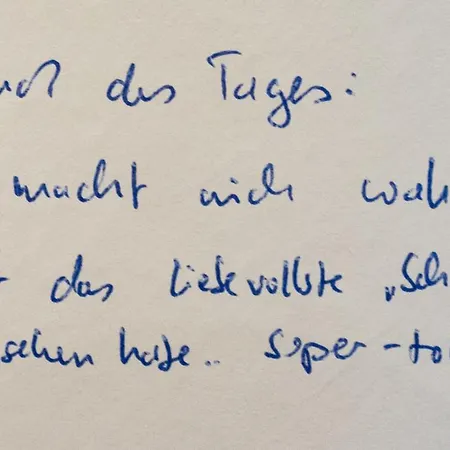 des Tages:
macht mich
das liebevollste „Sch
sehen habe.. super-to